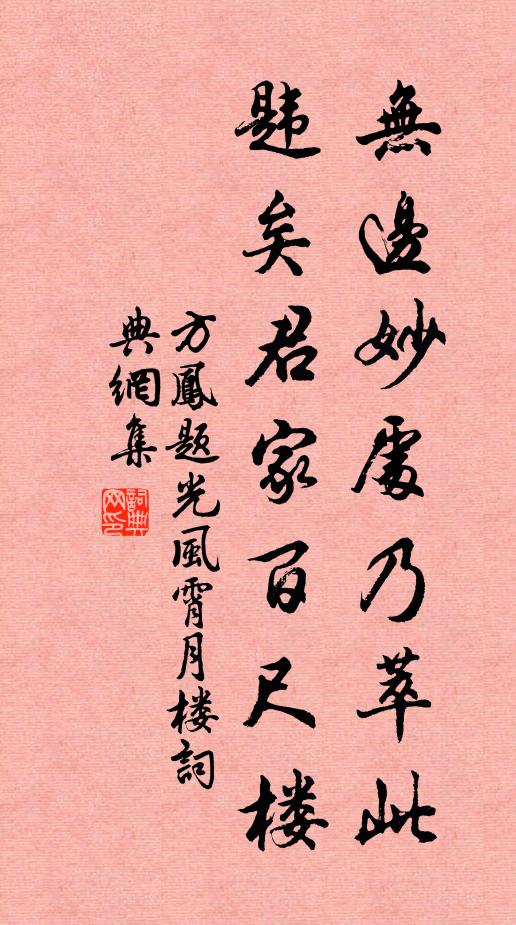 無邊妙處乃萃此
韙矣君家百尺楼
方鳳题光風霄月楼詞
典網集
詞典網印